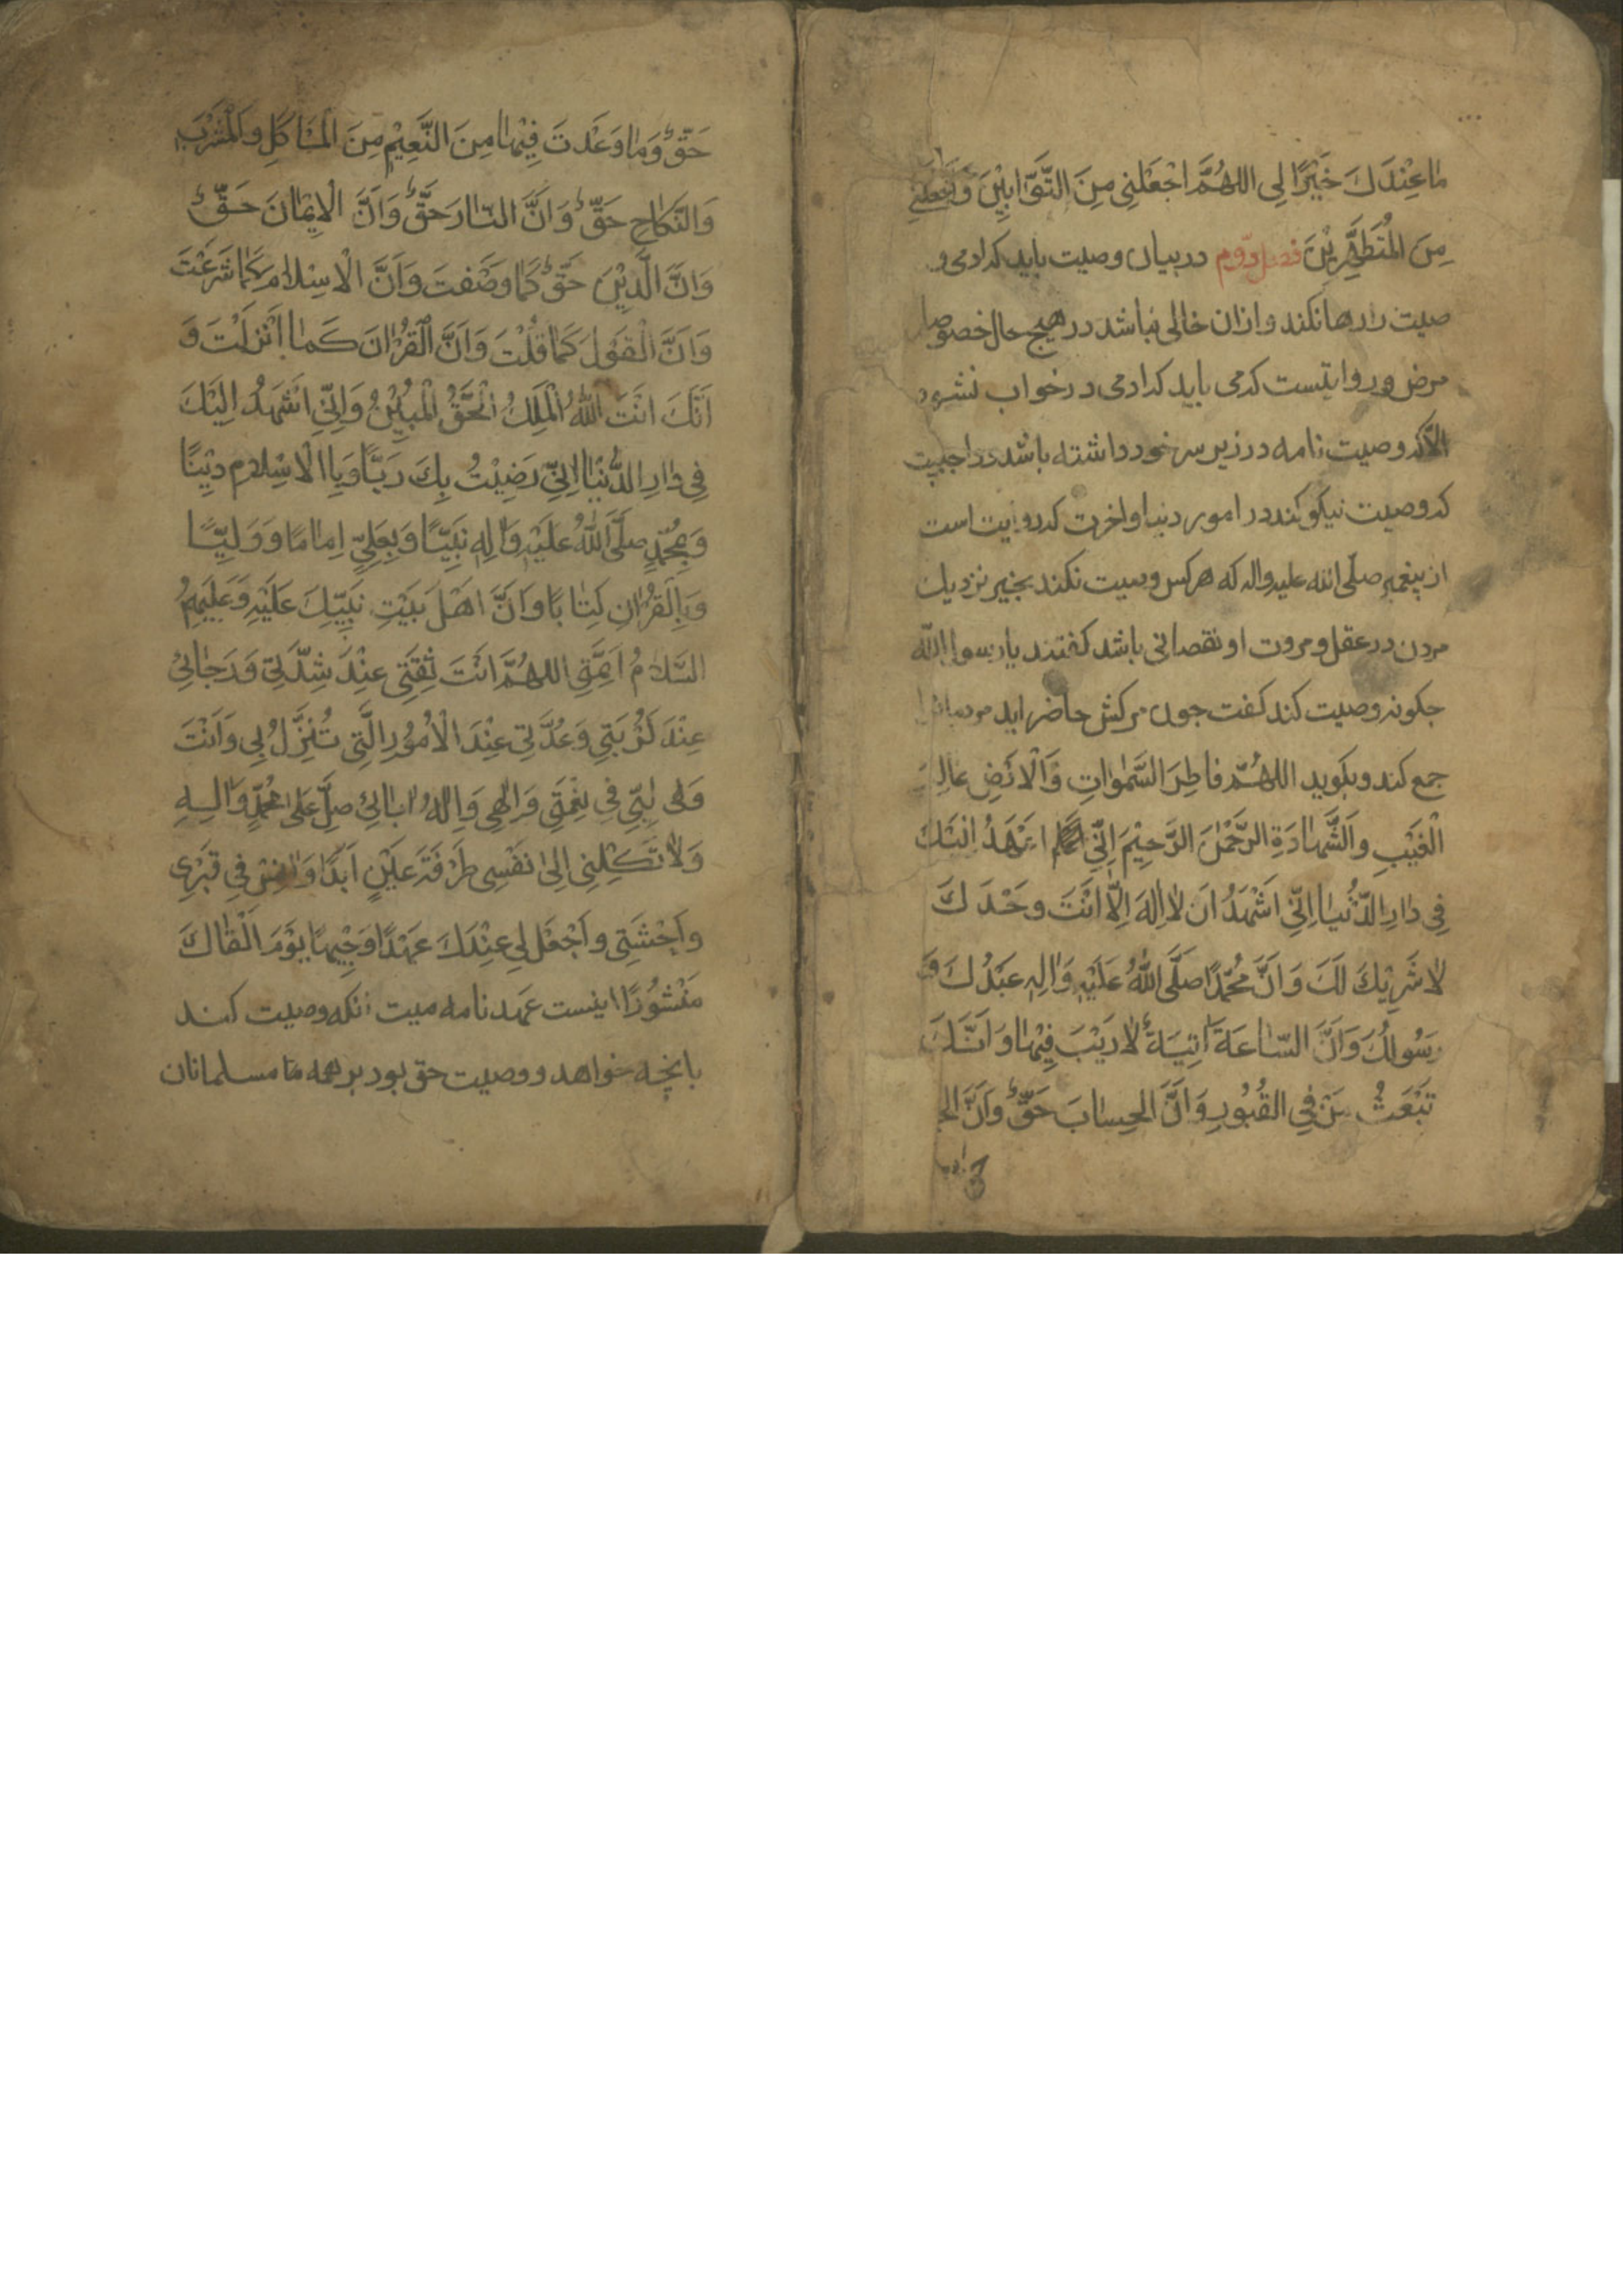 ما عِنْدَكَ خَيْرًا لِى اللهُمَّ اجْعَلْنِى مِنَ التَّوَّابِيْنَ وَاجْعَلْنِى
مِنَ المُتَطَهِّرِيْنَ فصل دوّم در بيان وصيت بايد كه ادمى و
صيت را رها نكند و ازان خالى نباشد در هيچ حال خصوصا
مرض و روايتست كه مى بايد كه ادمى در خواب نشود
الاّ كه وصيت نامه در زير سر خود داشته باشد و واجبست
كه وصيت نيكو كند در امور دنيا و اخرت كه روايت است
از پيغمبر صلّى الله عليه واله كه هركس وصيت نكند بخير نزديك
مردن در عقل و مروت او نقصانى باشد كفتند يا رسول الله
جكونه وصيت كند كفت جون مركش حاضر ايد مردمانرا
جمع كند و بكويد اللهُمّ فاطِرَ السَّمٰواتِ وَالْاَرْضِ عالِمَ
الْغَيْبِ وَالشَّهادَةِ الرَّحْمٰنَ الرَّحِيْمَ اِنِّىْ اَعْهَدُ اِلَيْكَ
فِى دارِ الدُّنْيا اِنِّىْ اَشْهَدُ اَنْ لا اِلٰهَ اِلاّ اَنْتَ وَحْدَكَ
لا شَرِيْكَ لَكَ وَاَنَّ مُحَمَّدًا صَلَّى اللهُ عَلَيْهِ وَالِهِ عَبْدُكَ وَ
رَسُولُكَ وَاَنَّ السّاعَةَ اٰتِيَةٌ لا رَيْبَ فِيْها وَاَنَّكَ
تَبْعَثُ مَنْ فِى القُبُورِ وَاَنَّ الحِسابَ حَقٌّ وَاَنَّ الج
حَقٌّ وَما وَعَدْتَ فِيْها مِنَ النَّعِيْمِ مِنَ المَاكَلِ وَالْمَشْرَبِ
وَالنَّكاحِ حَقٌّ وَاَنَّ النّارَ حَقٌّ وَاَنَّ الْاِيْمانَ حَقٌّ
وَاَنَّ الَّدِيْنَ حَقٌّ كَما وَصَفْتَ وَاَنَّ الْاِسْلامَ كَما شَرَعْتَ
وَاَنَّ الْقَوْلَ كَما قُلْتَ وَاَنَّ الْقُرْانَ كَما اَنْزَلْتَ وَ
اَنَّكَ اَنْتَ اللهُ الْمَلِكُ الْحَقُّ الْمُبِيْنُ وَاِنِّى اَشْهَدُ اِلَيْكَ
فِى دارِ الدُّنْيا اِنِّىْ رَضِيْتُ بِكَ رَبًّا وَبِالْاِسْلامِ دِيْنًا
وَبِمُحَمَّدٍ صلَّى اللهُ عَلَيْهِ وَالِهِ نَبِيًّا وَبِعَلِىٍّ اِمامًا وَوَلِيًّا
وَبِالْقُرْانِ كِتابًا وَاَنَّ اَهْلَ بَيْتِ نَبِيِّكَ عَلَيْهِ وَعَلَيْهِمُ
السَّلامُ اَئِمَّتِى اللهُمَّ اَنْتَ ثِقَتِى عِنْدَ شِدَّتِى وَرَجائِىْ
عِنْدَ كُرْبَتِى وَعُدَّتِى عِنْدَ الْاُمُوْرِ الَّتِى تُنْزَلُ بِى وَاَنْتَ
وَلِيِّى فِى نِعْمَتِى وَاِلٰهِى وَاِلٰهُ اٰبائِىْ صَلِّ عَلٰى مُحَمَّدٍ وَاٰلِهِ
وَلا تَكِلْنِى اِلىٰ نَفْسِى طَرْفَةَ عَيْنٍ اَبَدًا وَاٰنِسْ فِى قَبْرِى
وَاَحْشَتِى وَاَجْعَلْ لِى عِنْدَكَ عَهْدًا وَجِيْهًا يَوْمَ الْقٰاكَ
مَنْشُوْرًا اينست عهد نامه ميت انكه وصيت كند
بانچه خواهد و وصيت حق بود بر همه مسلمانان